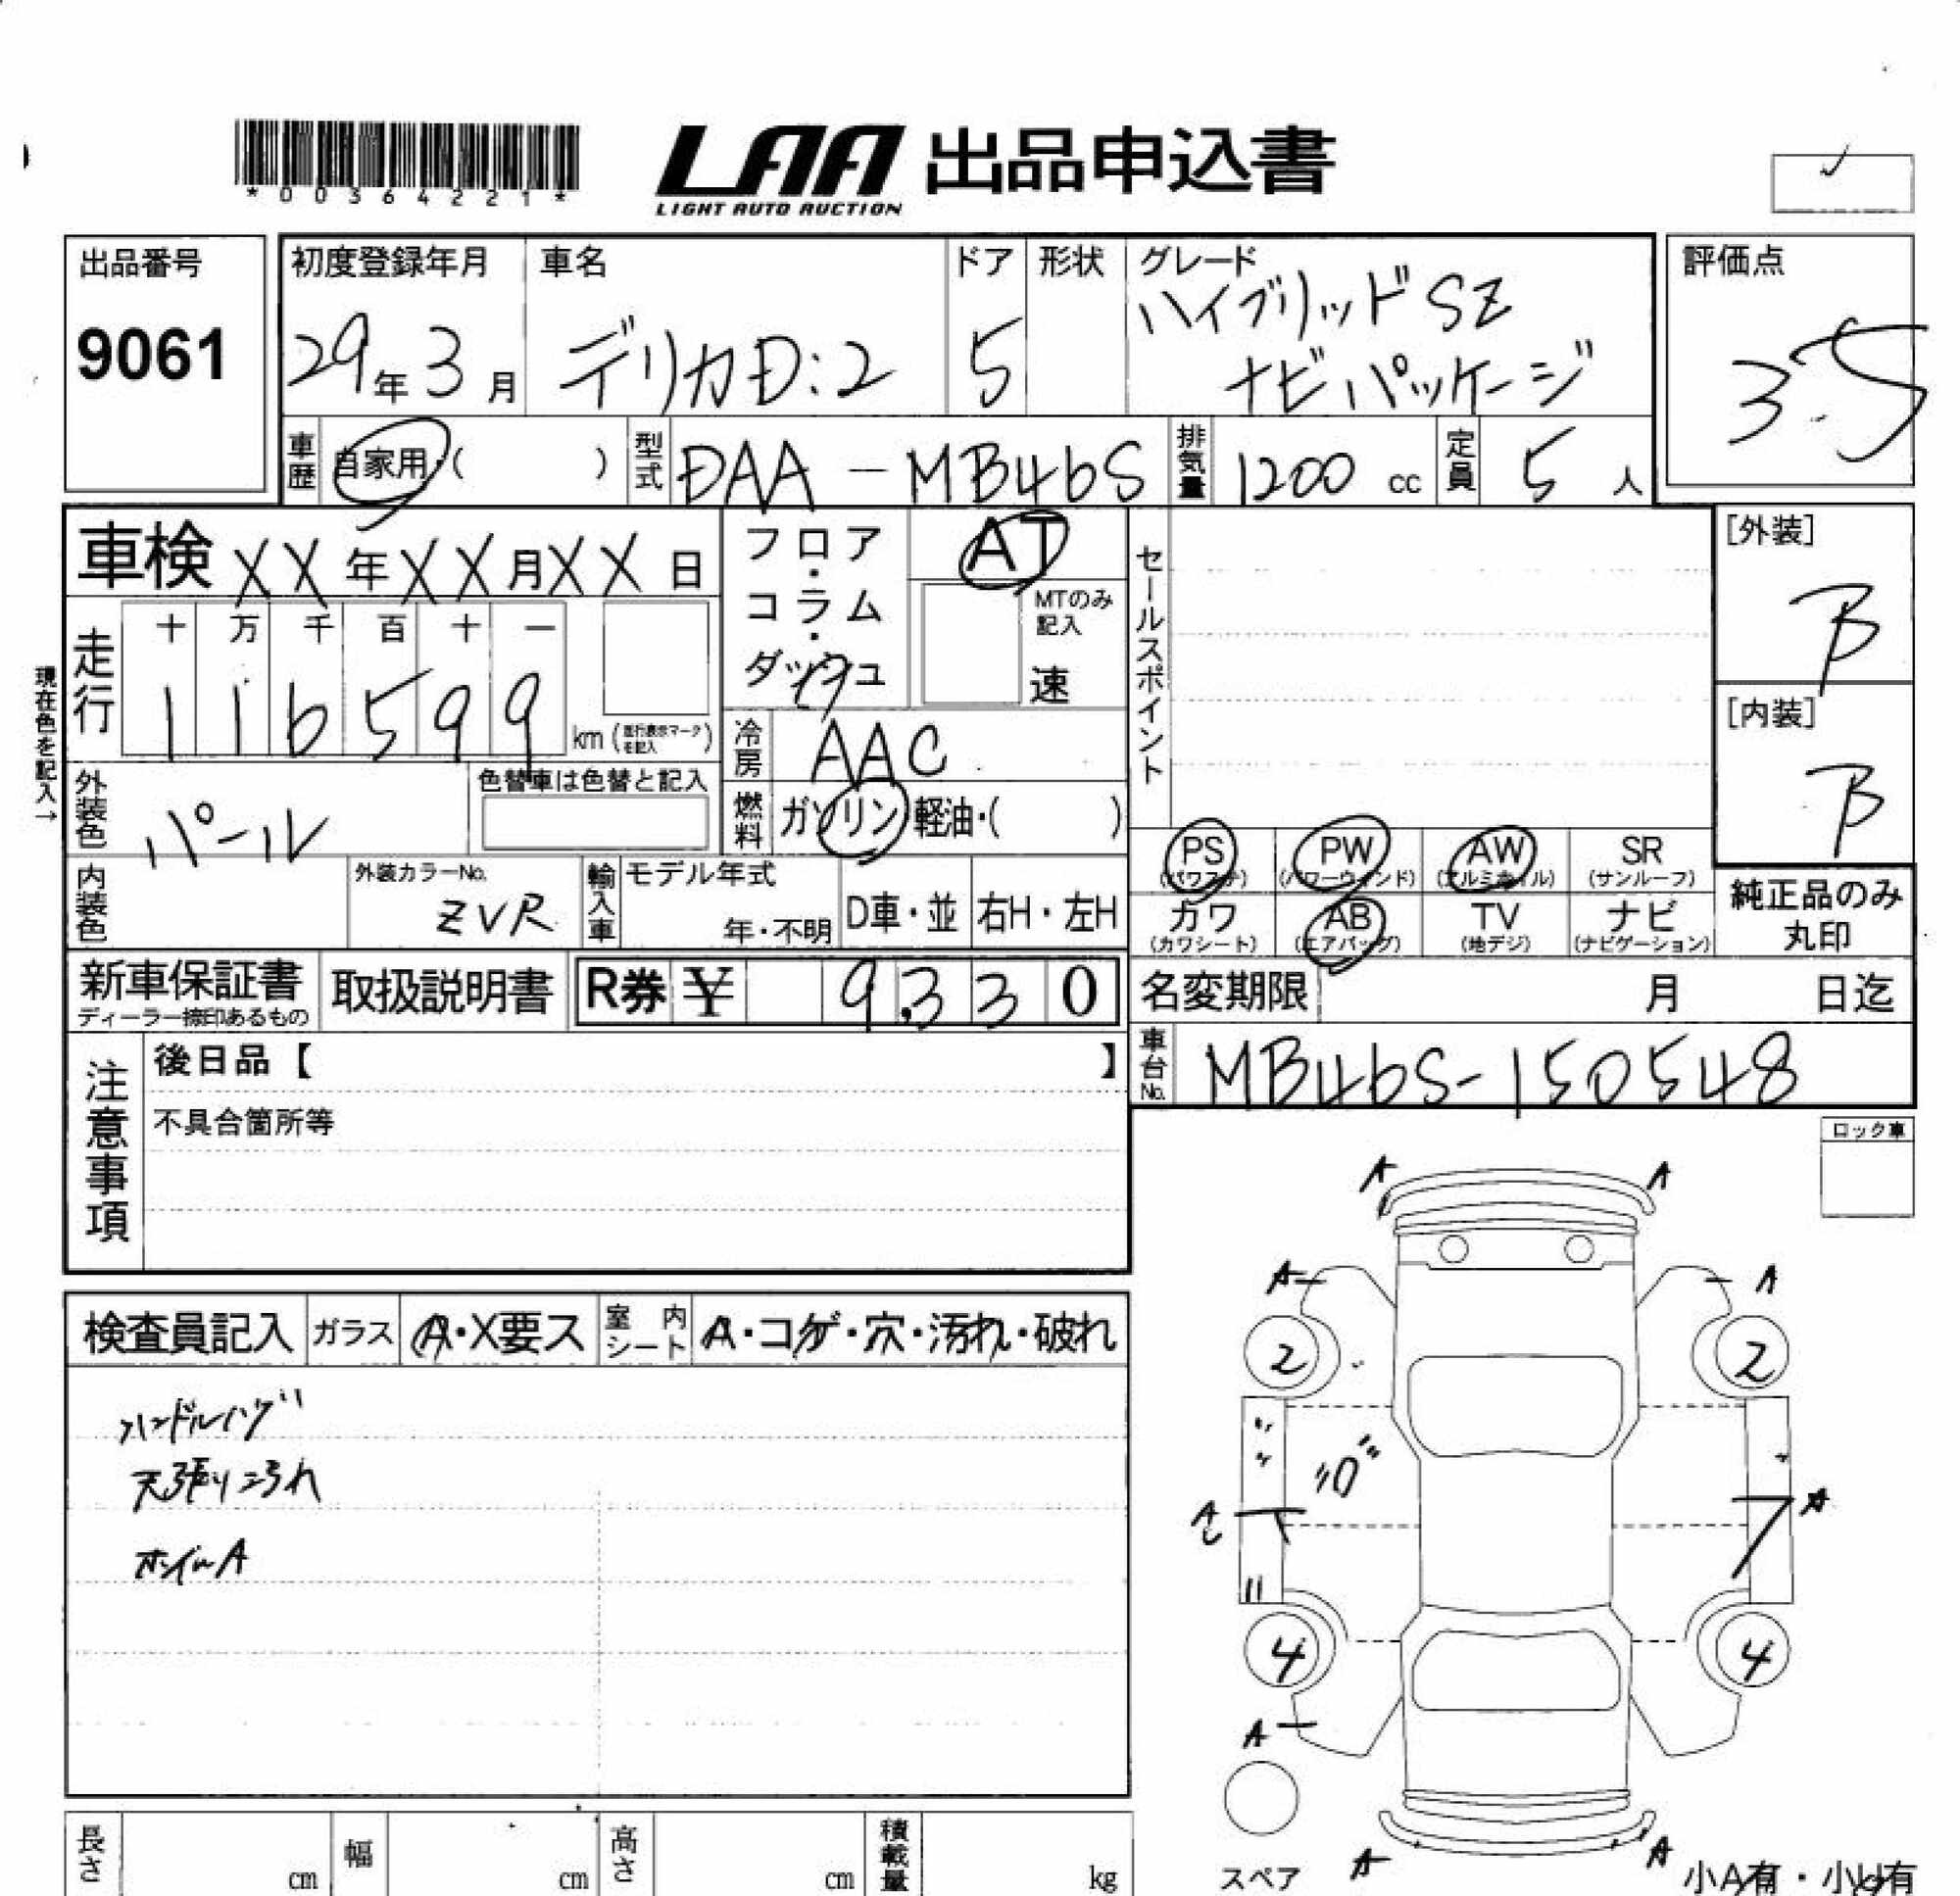 *00364221*
LAA 出品申込書
LIGHT AUTO AUCTION
出品番号
9061
初度登録年月
29年3月
車名
デリカD:2
ドア
5
形状
グレード
ハイブリッドSZ
ナビパッケージ
評価点
3.5
車歴 自家用・( )
型式 DAA-MB46S
排気量 1200 cc
定員 5 人
車検 XX年XX月XX日
フロア・コラム・ダッシュ
AT
MTのみ記入
速
セールスポイント
[外装]
B
[内装]
B
現在色を記入→
走行
十 万 千 百 十 一
1 1 6 5 9 9 km (走行表示マークを記入)
冷房 AAC
外装色 パール
色替車は色替と記入
燃料 ガソリン・軽油・( )
PS (パワステ)
PW (パワーウィンド)
AW (アルミホイル)
SR (サンルーフ)
カワ (カワシート)
AB (エアバッグ)
TV (地デジ)
ナビ (ナビゲーション)
純正品のみ
丸印
内装色
外装カラーNo.
ZVR
輸入車
モデル年式
年・不明
D車・並
右H・左H
新車保証書
ディーラー捺印あるもの
取扱説明書
R券 ¥ 9,330
名変期限 月 日迄
車台No. MB46S-150548
注意事項
後日品【 】
不具合箇所等
ロック車
検査員記入
ガラス A・X要ス
室内シート A・コゲ・穴・汚れ・破れ
ハンドルハゲ
天張り汚れ
ホイルA
A A
A A
2 2
A
A
4 4
A
スペア
A A
小A有・小U有
長さ cm
幅 cm
高さ cm
積載量 kg